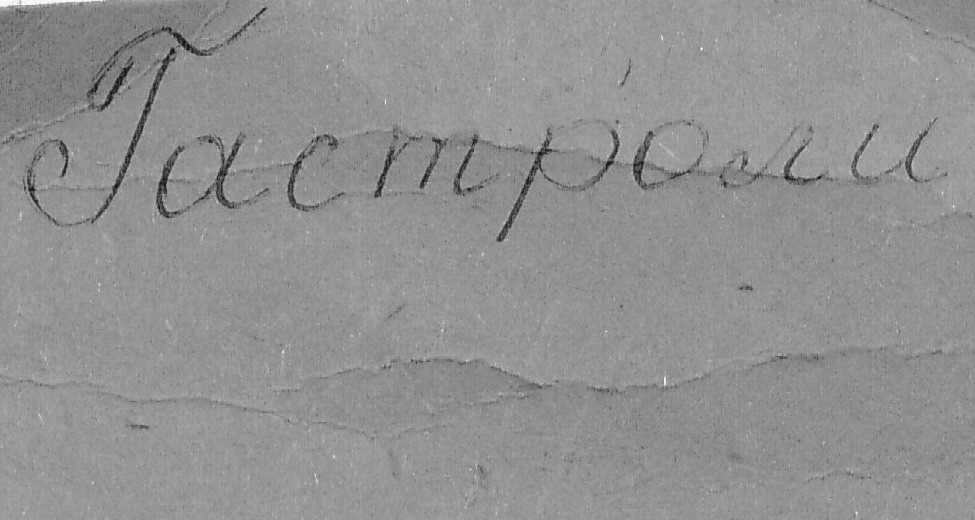 Гастроли